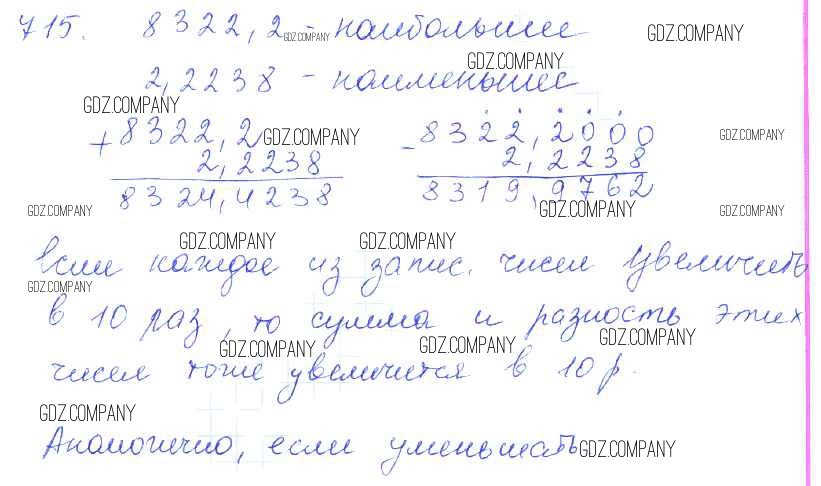 715. 8322,2 - наибольшее GDZ.COMPANY GDZ.COMPANY
2,2238 - наименьшее GDZ.COMPANY
GDZ.COMPANY
+ 8322,2 GDZ.COMPANY - 8322,2000 GDZ.COMPANY
2,2238 2,2238
8324,4238 8319,9762
GDZ.COMPANY GDZ.COMPANY GDZ.COMPANY
GDZ.COMPANY GDZ.COMPANY
Если каждое из запис. чисел увеличить
GDZ.COMPANY
в 10 раз, то сумма и разность этих
GDZ.COMPANY GDZ.COMPANY GDZ.COMPANY
чисел тоже увеличится в 10 р.
GDZ.COMPANY
Аналогично, если уменьшать GDZ.COMPANY